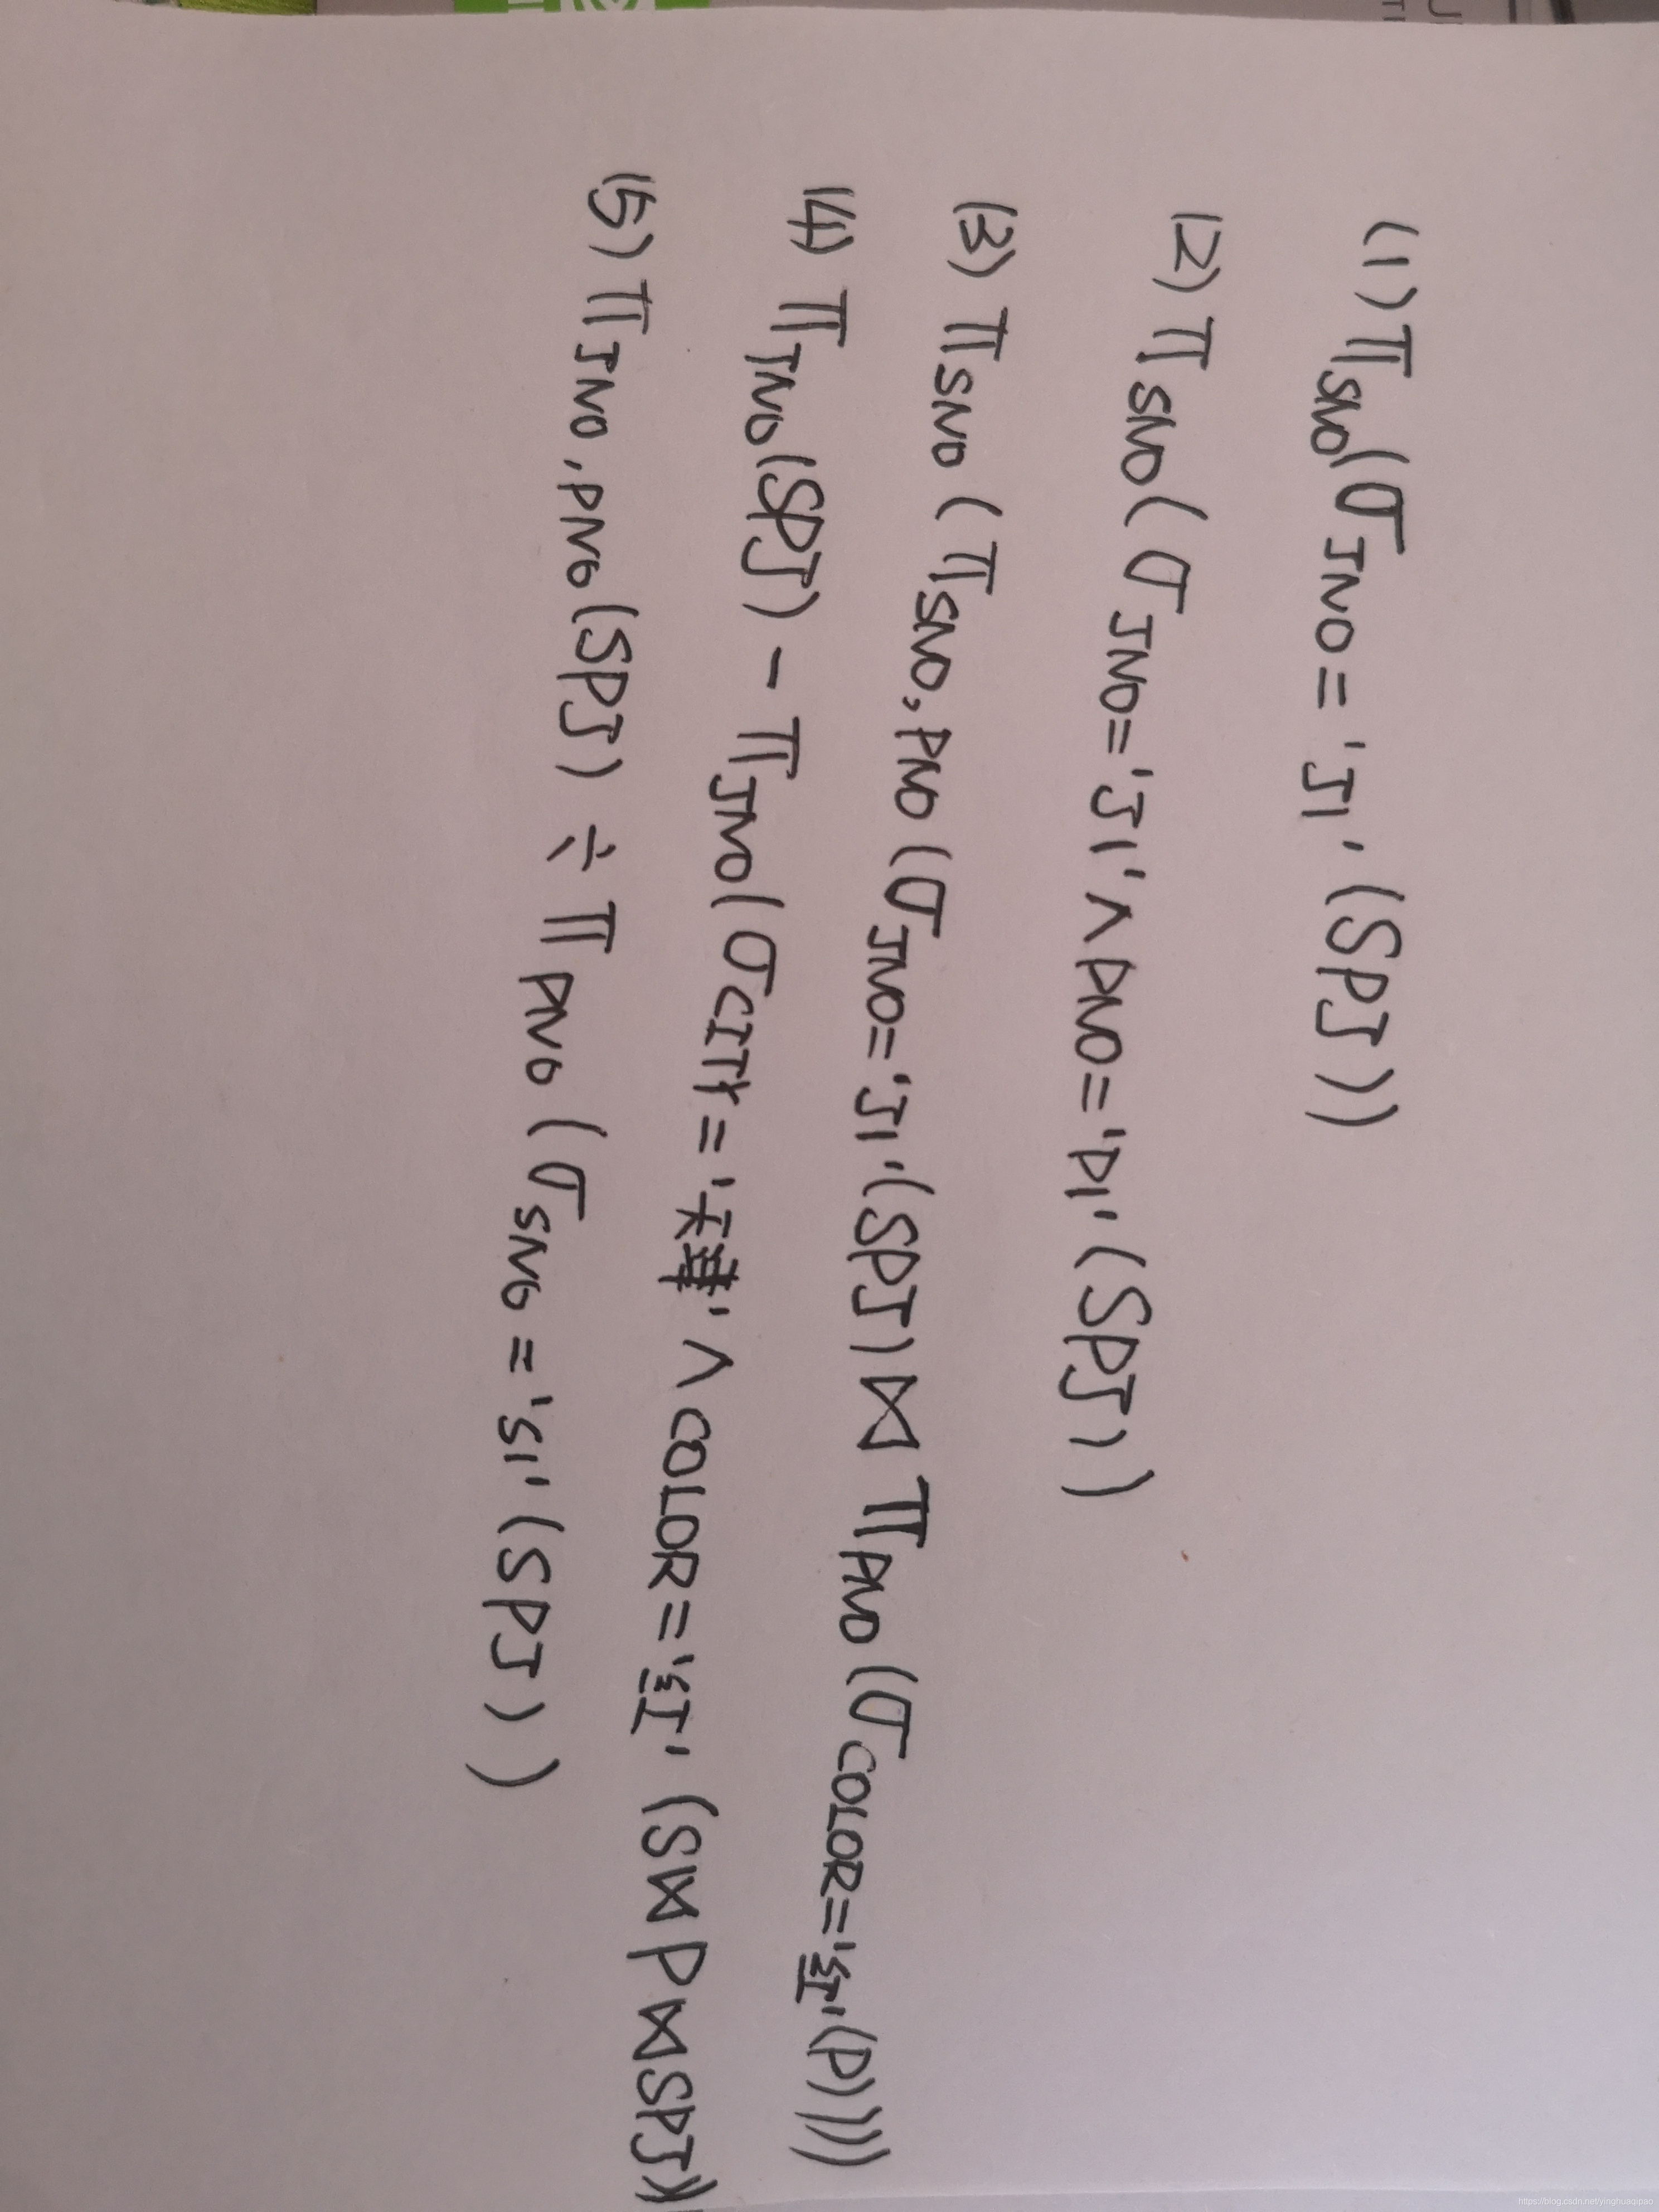 (1) πSNO(σJNO='J1'(SPJ))
(2) πSNO(σJNO='J1'∧PNO='P1'(SPJ))
(3) πSNO(πSNO,PNO(σJNO='J1'(SPJ)⋈πPNO(σCOLOR='红'(P))))
(4) πJNO(SPJ)-πJNO(σCITY='天津'∧COLOR='红'(S⋈P⋈SPJ))
(5) πJNO,PNO(SPJ)÷πPNO(σSNO='S1'(SPJ))
https://blog.csdn.net/yinghuaqipao